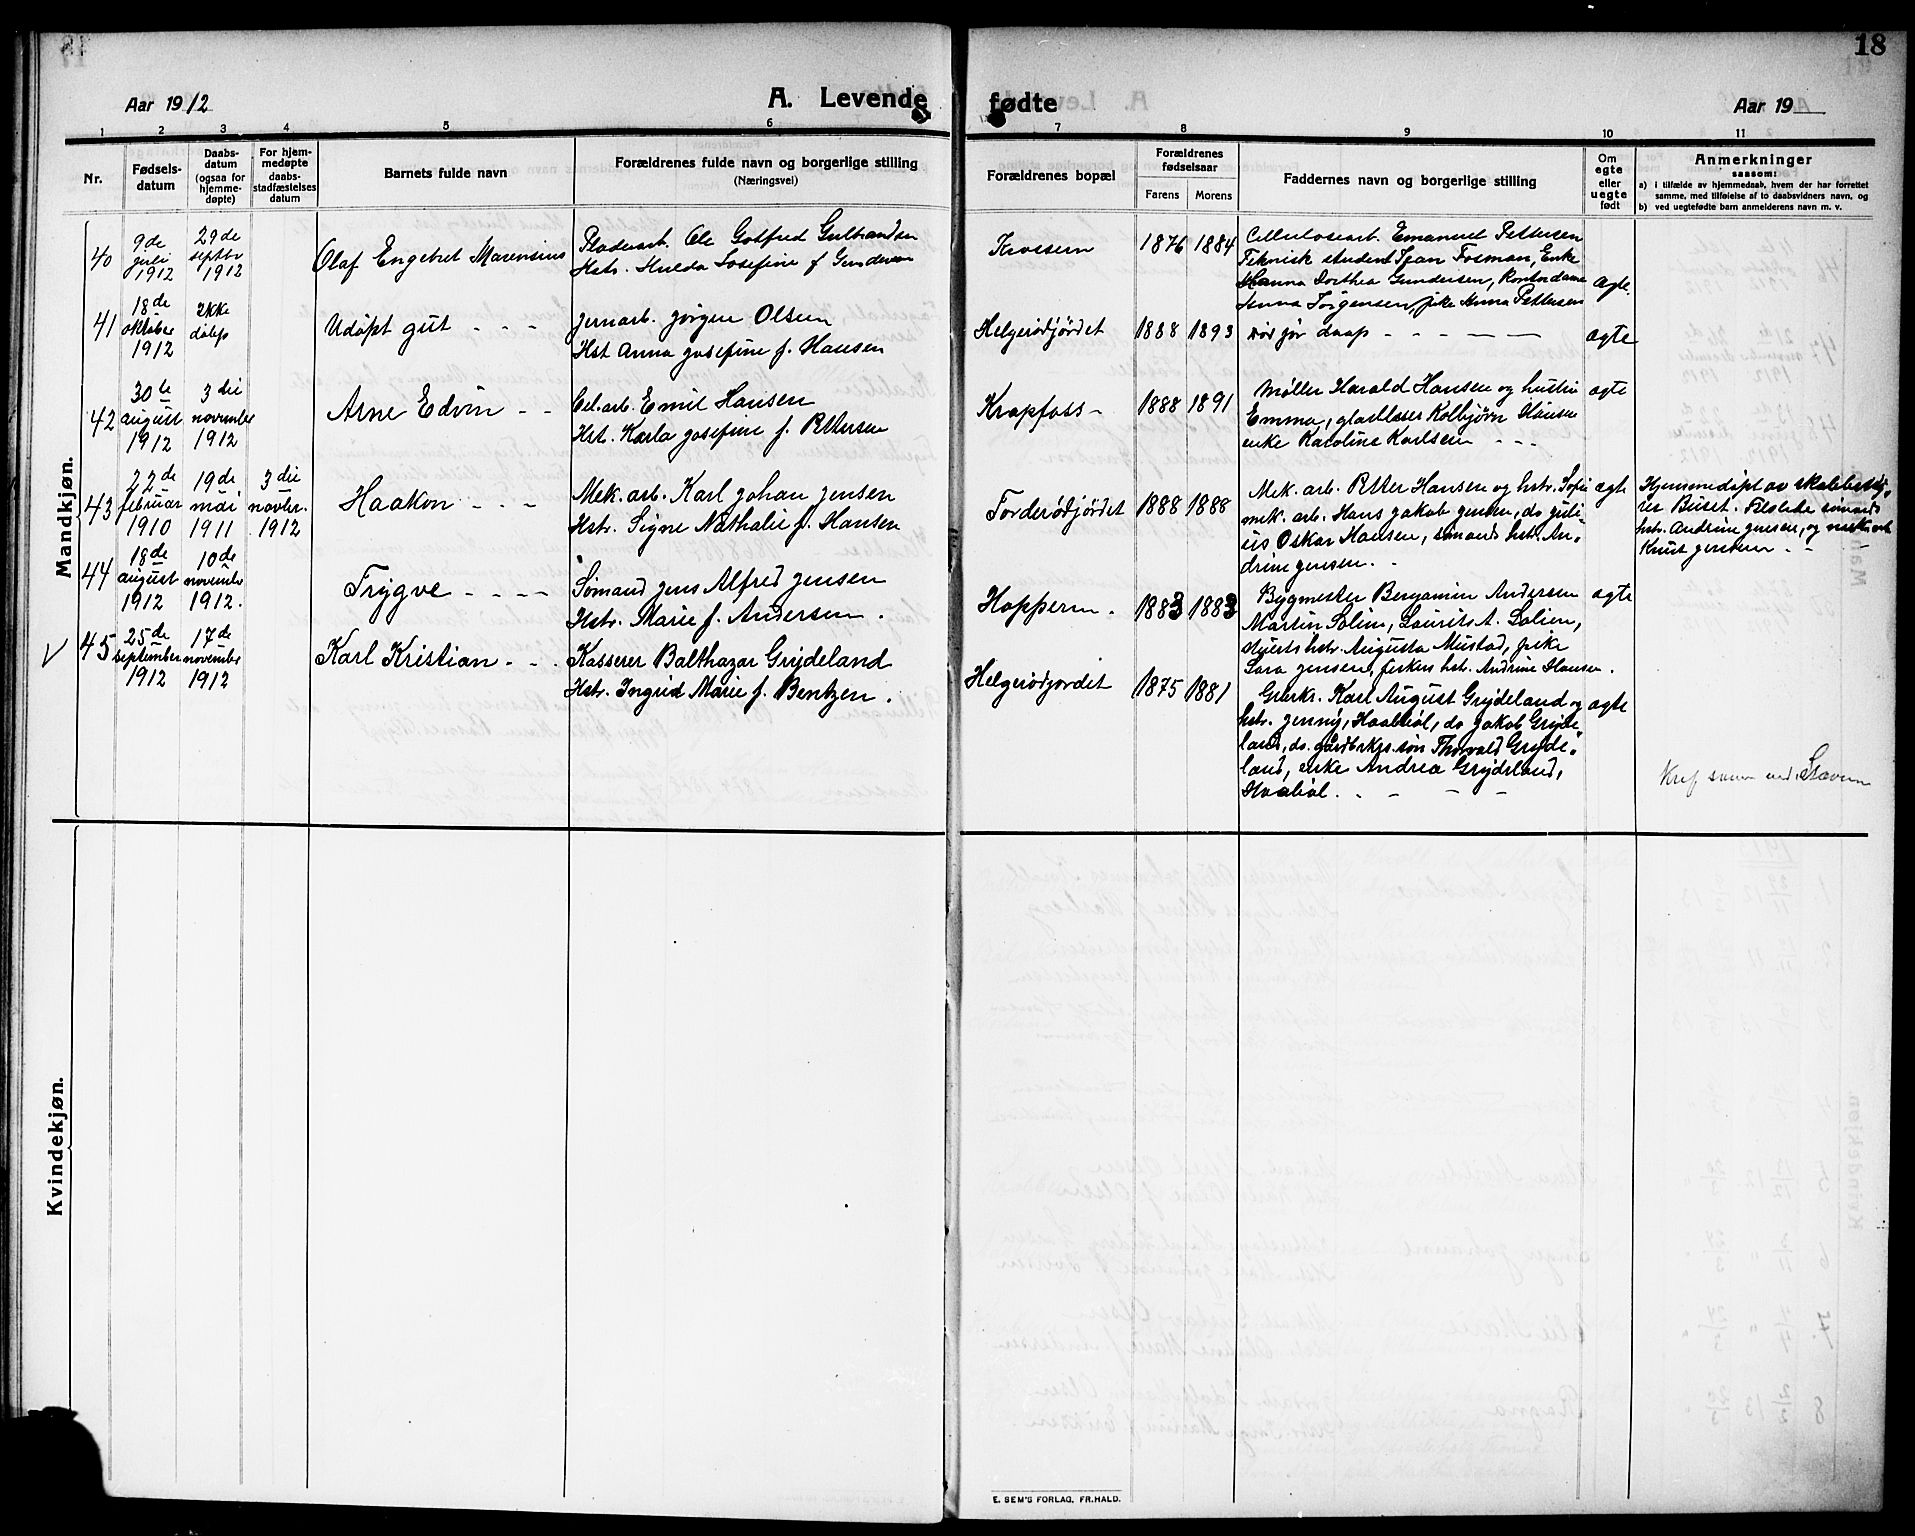 18
Aar 1912
A. Levende fødte
Aar 19
1 2 3 4 5 6 7 8 9 10 11
Nr.
Fødsels-
datum
Daabs-
datum
(ogsaa for
hjemme-
døpte)
For hjem-
medøpte
daabs-
stadfæstelses
datum
Barnets fulde navn
Forældrenes fulde navn og borgerlige stilling
(Næringsvei)
Forældrenes bopæl
Forældrenes
fødselsaar
Farens Morens
Faddernes navn og borgerlige stilling
Om
egte
eller
uegte
født
Anmerkninger
saasom:
a) i tilfælde av hjemmedaab, hvem der har forrettet
samme, med tilføielse af to daabsvidners navn, og
b) ved uegtefødte barn anmelderens navn m. v.
Mandkjøn.
40
9de
juli
1912
29de
septbr
1912
Olaf Engebret Marensius
Pladearb. Ole Gotfred Gulbrandsen
Hstr. Hulda Josefine f. Gundersen
Krossern
1876 1884
Cellulosearb. Emanuel Pettersen
Teknisk student Fosman, Enke
Hanna Dorthea Gundersen, Kontordame
Anna Jørgensen, pike Anna Pettersen
egte.
41
18de
oktober
1912
Ikke
døbt
Udøpt gut - - -
Jernarb. Jørgen Olsen
Hst Anna Josefine f. Hansen
Helgerødjordet
1888 1893
død før daap - - - - -
egte
42
30te
august
1912
3die
november
1912
Arne Edvin - -
Cel. arb. Emil Hansen
Hst. Karla Josefine f. Pettersen
Krapfoss -
1888 1891
Møller Harald Hansen og hustru
Emma, Kolbjørn Hansen
enke Karoline Karlsen - - -
egte
43
22de
februar
1910
19de
mai
1911
3die
novbr.
1912
Haakon - - -
Mek. arb. Karl Johan Jensen
Hstr. Signe Nathalie f. Hansen
Torderødjordet
1888 1888
Mek. arb. Petter Hansen og hstr. Sofie
mek. arb. Hans Jakob Jensen, do Juli-
us Oskar Hansen, sømands hstr. An-
drine Jensen. -
egte
Hjemmedøpt av skolebesty-
rer Buset. sømands
hstr. Andrine Jensen, og mek. arb
Knut Jensen - -
44
18de
august
1912
10de
november
1912.
Trygve - - - -
Sømand Jens Alfred Jensen
Hstr. Marie f. Andersen .
Hoppern -
1883 1883
Bygmester Benjamin Andersen
Martin Solien, Laurits A. Solien,
hstr. Augusta Mustad, pike
Sara Jensen, fiskers hst. Andrine Hansen.
egte
45
25de
september
1912
17de
november
1912
Karl Kristian - - -
Kasserer Balthazar Grydeland
Hstr. Ingrid Marie f. Bentzen .
Helgerødjordet
1875 1881
Grbrkr. Karl August Grydeland og
hstr. Jenny, Haabøl, do Jakob Gryde-
land, do. gårdbrkrs. søn Thorvald Gryde-
land, enke Andrea Grydeland,
Haabøl. - - - -
egte
Kvindekjøn.
E. SEM'S FORLAG, FR.HALD.